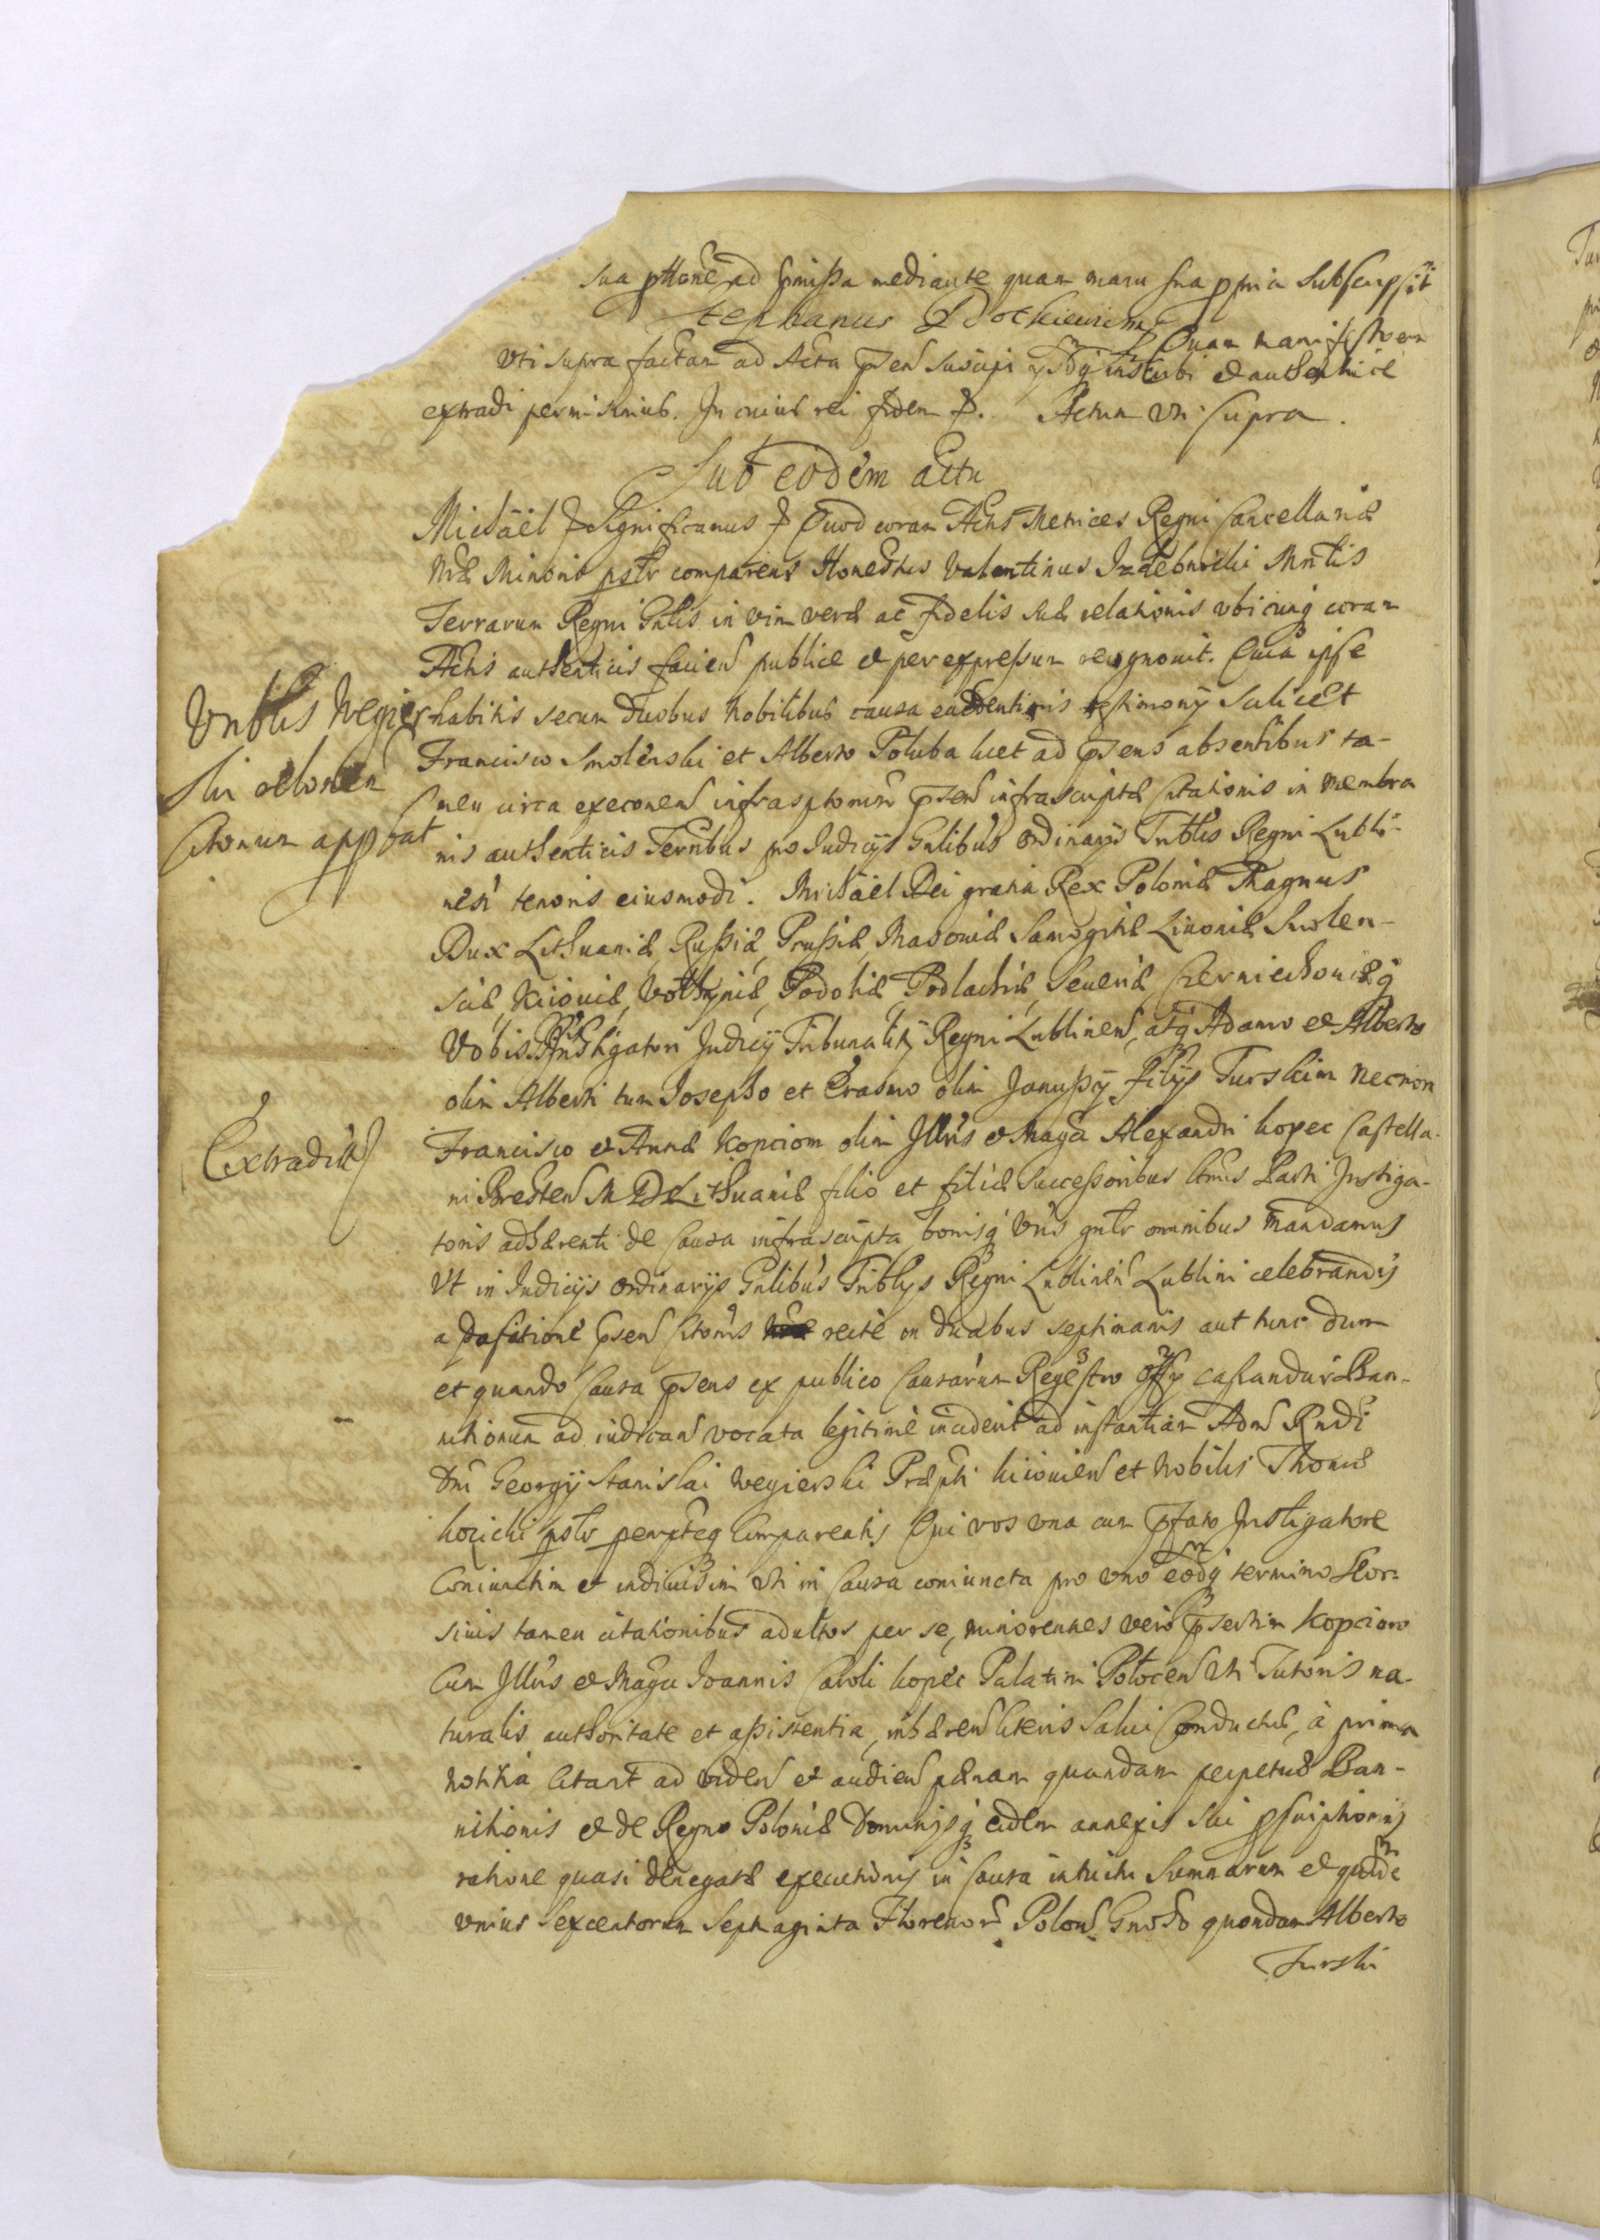 sua pttone ad pmissa mediante quam manu sua ppria subscripsit
Stephanus
Quam manifestoem
Uti supra factam ad Acta psen suscipi ysdq inscribi et authenticè
extradi permisimus. In cuius rei fidem &. Actum uti supra.
Sub eodem actu
Michaël & Significamus & Quod coram Actis Metrices Regni Cancellariæ
Nræ Minoris pslr comparens Honestus Valentinus Izdebnicki Mntlis
Terrarum Regni Gnlis in vim veræ ac fidelis suæ relationis ubicunq coram
Actis authenticis faciens publice et per expressum recognovit. Quia ipse
habitis secum duobus Nobilibus causa evidentioris testimonÿ scilicet
Francisco Smolenski et Alberto Poluba licet ad psens absentibus ta-
men circa execonem infrasptorum psen infrascriptæ Citationis in membra
nis authenticis Ternibus pro Judicÿs Gnlibus ordinarÿs Tribtlis Regni Lubli-
nen tenoris eiusmodi. Michaël Dei gratia Rex Poloniæ Magnus
Dux Lithuaniæ, Russiæ, Prussiæ, Masoviæ Samogitiæ Livoniæ Smolen-
sciæ, Kiioviæ, Volhyniæ, Podoliæ, Podlachiæ, Severiæ Czerniechoviæq
Vobis Instigatori Judicÿ Tribunalitÿ Regni Lublinen, atq Adamo et Alberto
olim Alberti tum Josepho et Erasmo olim Janussÿ filÿs Turskim necnon
Francisco et Annæ Kopciom olim Illris et Magci Alexandri Kopec Castella-
ni Bresten M D Lithuaniæ filio et filiæ successoribus Ctmis Parti Instiga-
toris adhærenti de Causa infrascripta bonisq Vris gnlr omnibus mandamus
Ut in Judicÿs ordinarÿs Gnlibus Triblÿs Regni Lublinen Lublini celebrandis
a positione psen Citonis recte in duabus septimanis aut tunc dum
et quando Causa psens ex publico Causarum Regestro offÿ cassandar Ban-
nitionum ad iudican vocata legitimè inciderit ad instantiam Adm Rndi
Dni Georgÿ Stanislai Wegierski Præpti Kiiovien et Nobilis Thomæ
Kozicki pslr perepteq Compareatis Qui vos una cum pfato Instigatore
Coniunctim et indivisim uti in Causa coniuncta pro uno eodq termino Seor-
sivis tamen citationibus adultos per se, minorennes vero psertim Kopciow
Cum Illris et Magci Joannis Caroli Kopec Palatini Polocen uti Tutoris na-
turalis authoritate et assistentia, inhæren literis Salvi Conductus, à prima
notitia Citant ad viden et audien pænam quandam perpetuæ Ban-
nitionis et de Regno Poloniæ Dominÿsq eidem annexis sui pscriptionis
ratione quasi denegatæ executionis in Causa intuitu Summarum et quidē
unius Sexcentorum Septuaginta Florenor Polon Gnoso quondam Alberto
Turski
Vnblis Wegier
ski relonem
Citonum approbat
Extradit